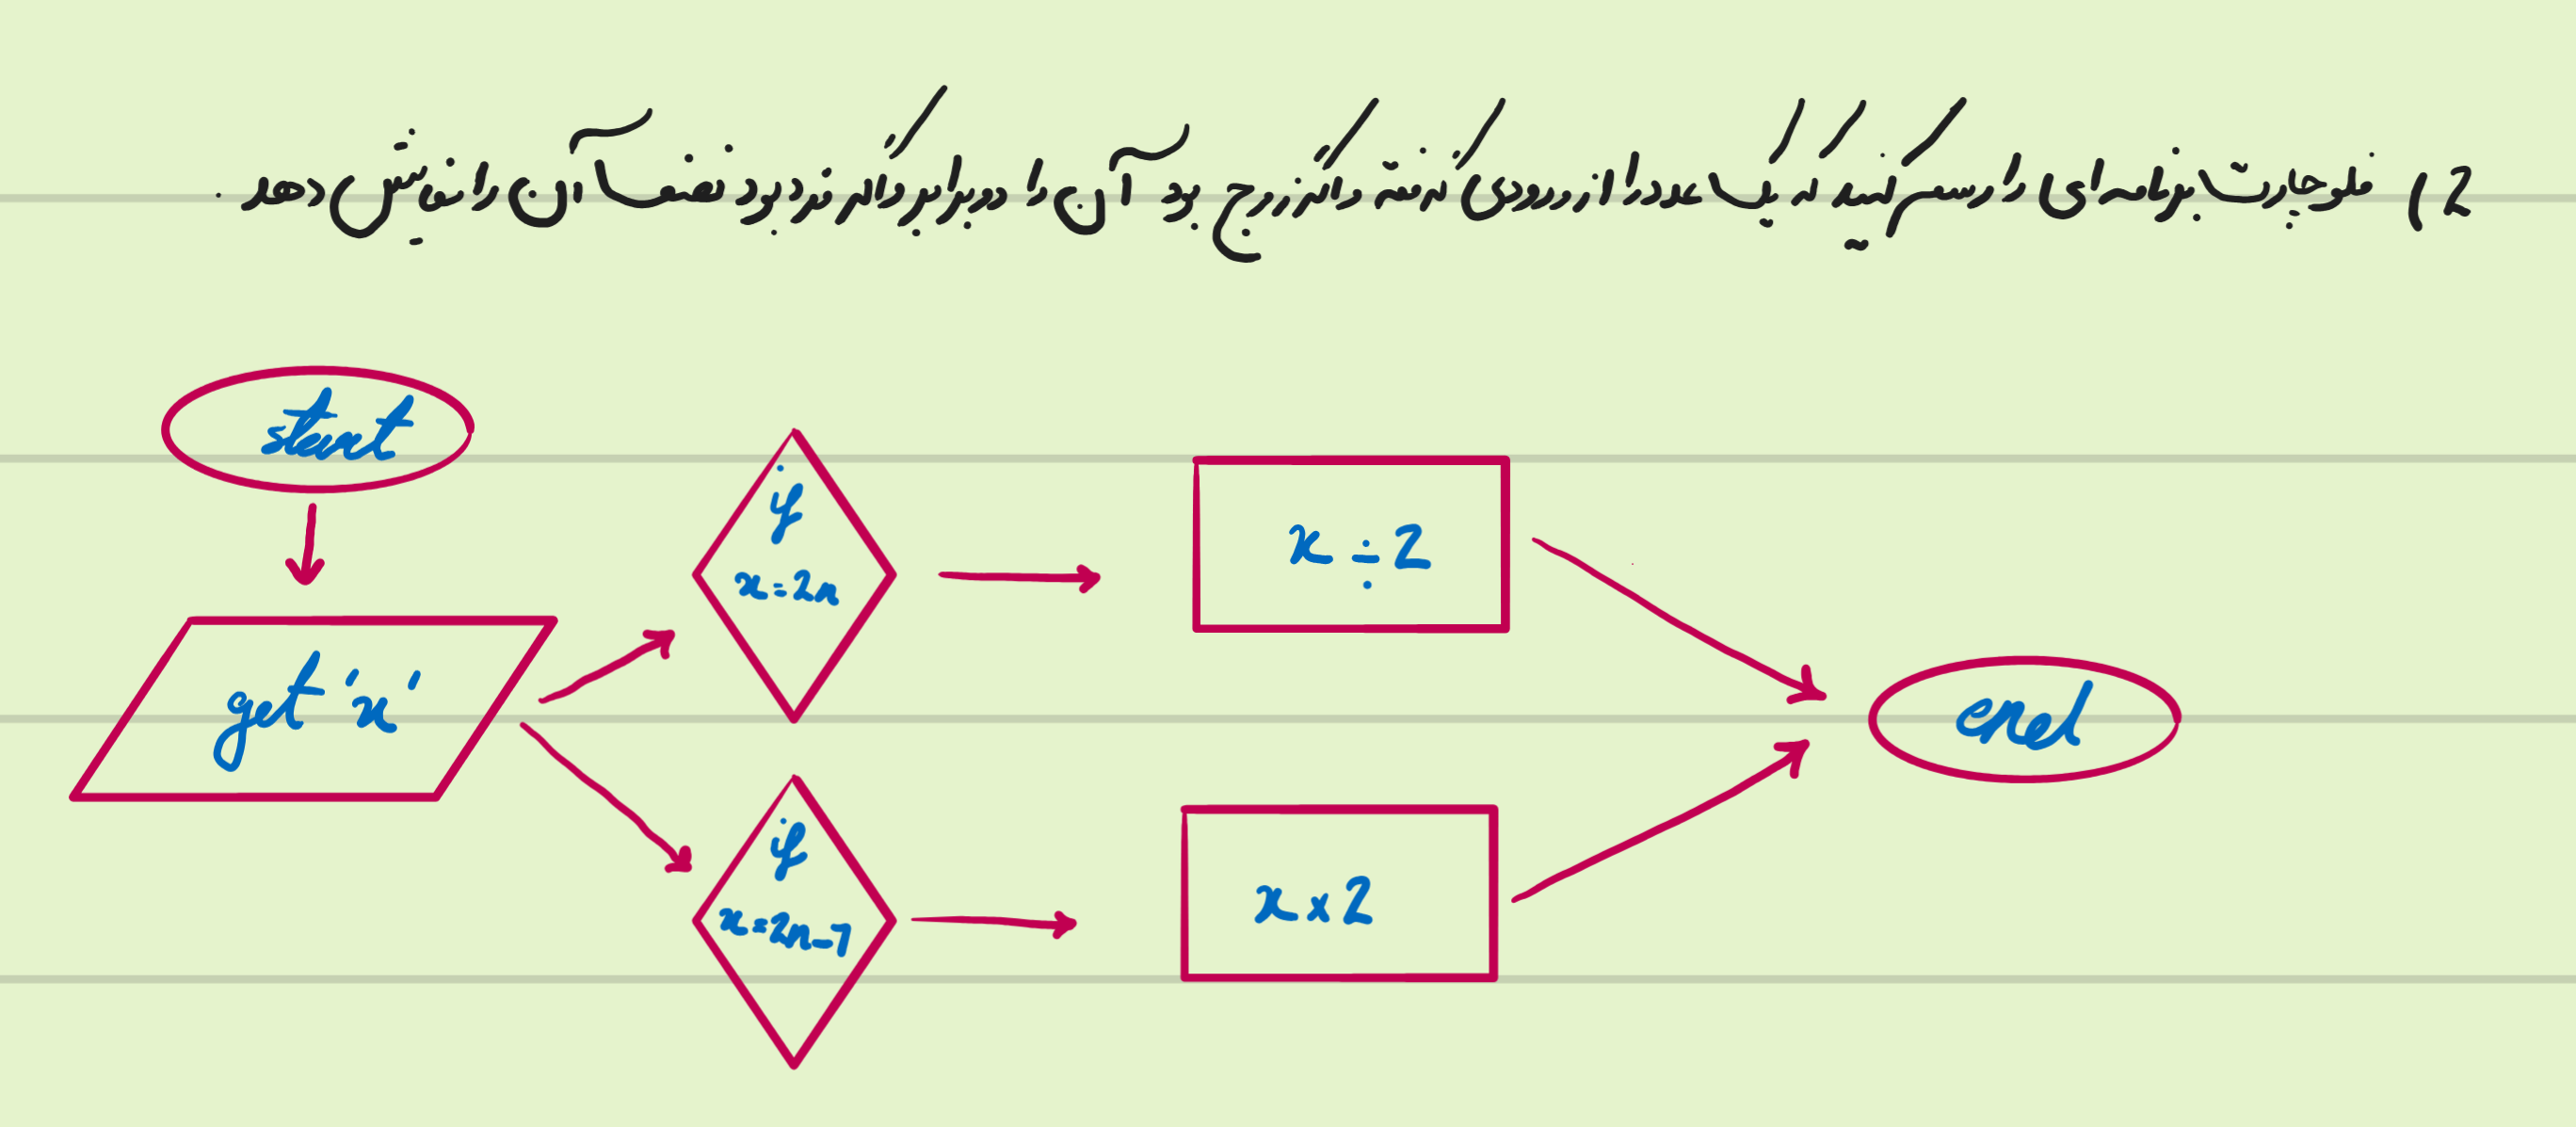 2) فلوچارت برنامه ای را رسم کنید که یک عدد را از ورودی گرفته و اگر زوج بود آن را دو برابر و اگر فرد بود نصف آن را نمایش دهد .
start
get 'x'
if
x=2n
x÷2
if
x=2n-1
x×2
end